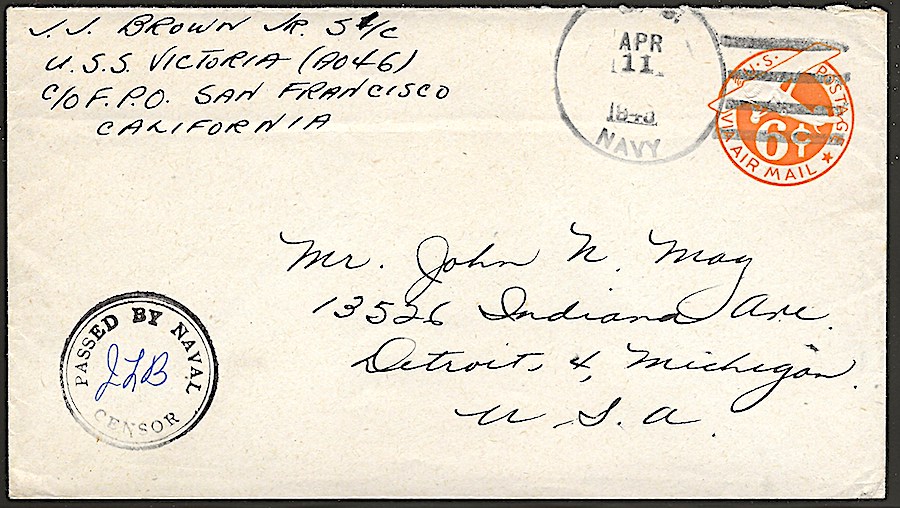 J. J. BROWN JR. S 1/C
U.S.S. VICTORIA (AO46)
C/O F.P.O. SAN FRANCISCO
CALIFORNIA
APR
11
NAVY
U.S. POSTAGE
6¢
VIA AIR MAIL
Mr. John N. May
13526 Indiana Ave.
Detroit, 4, Michigan.
U. S. A.
PASSED BY NAVAL
JLB
CENSOR